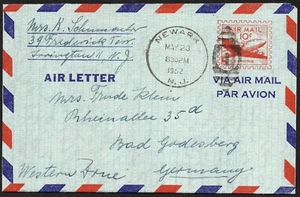 Mrs. K. Schumacher
39 Frederick Terr.
Irvington 11, N. J.
NEWARK
MAY 23
830PM
1952
N. J.
AIR MAIL
10¢
AIR LETTER
VIA AIR MAIL
PAR AVION
Mrs. Trude Klein
Rheinallee 35d
Bad Godesberg
Western Zone Germany